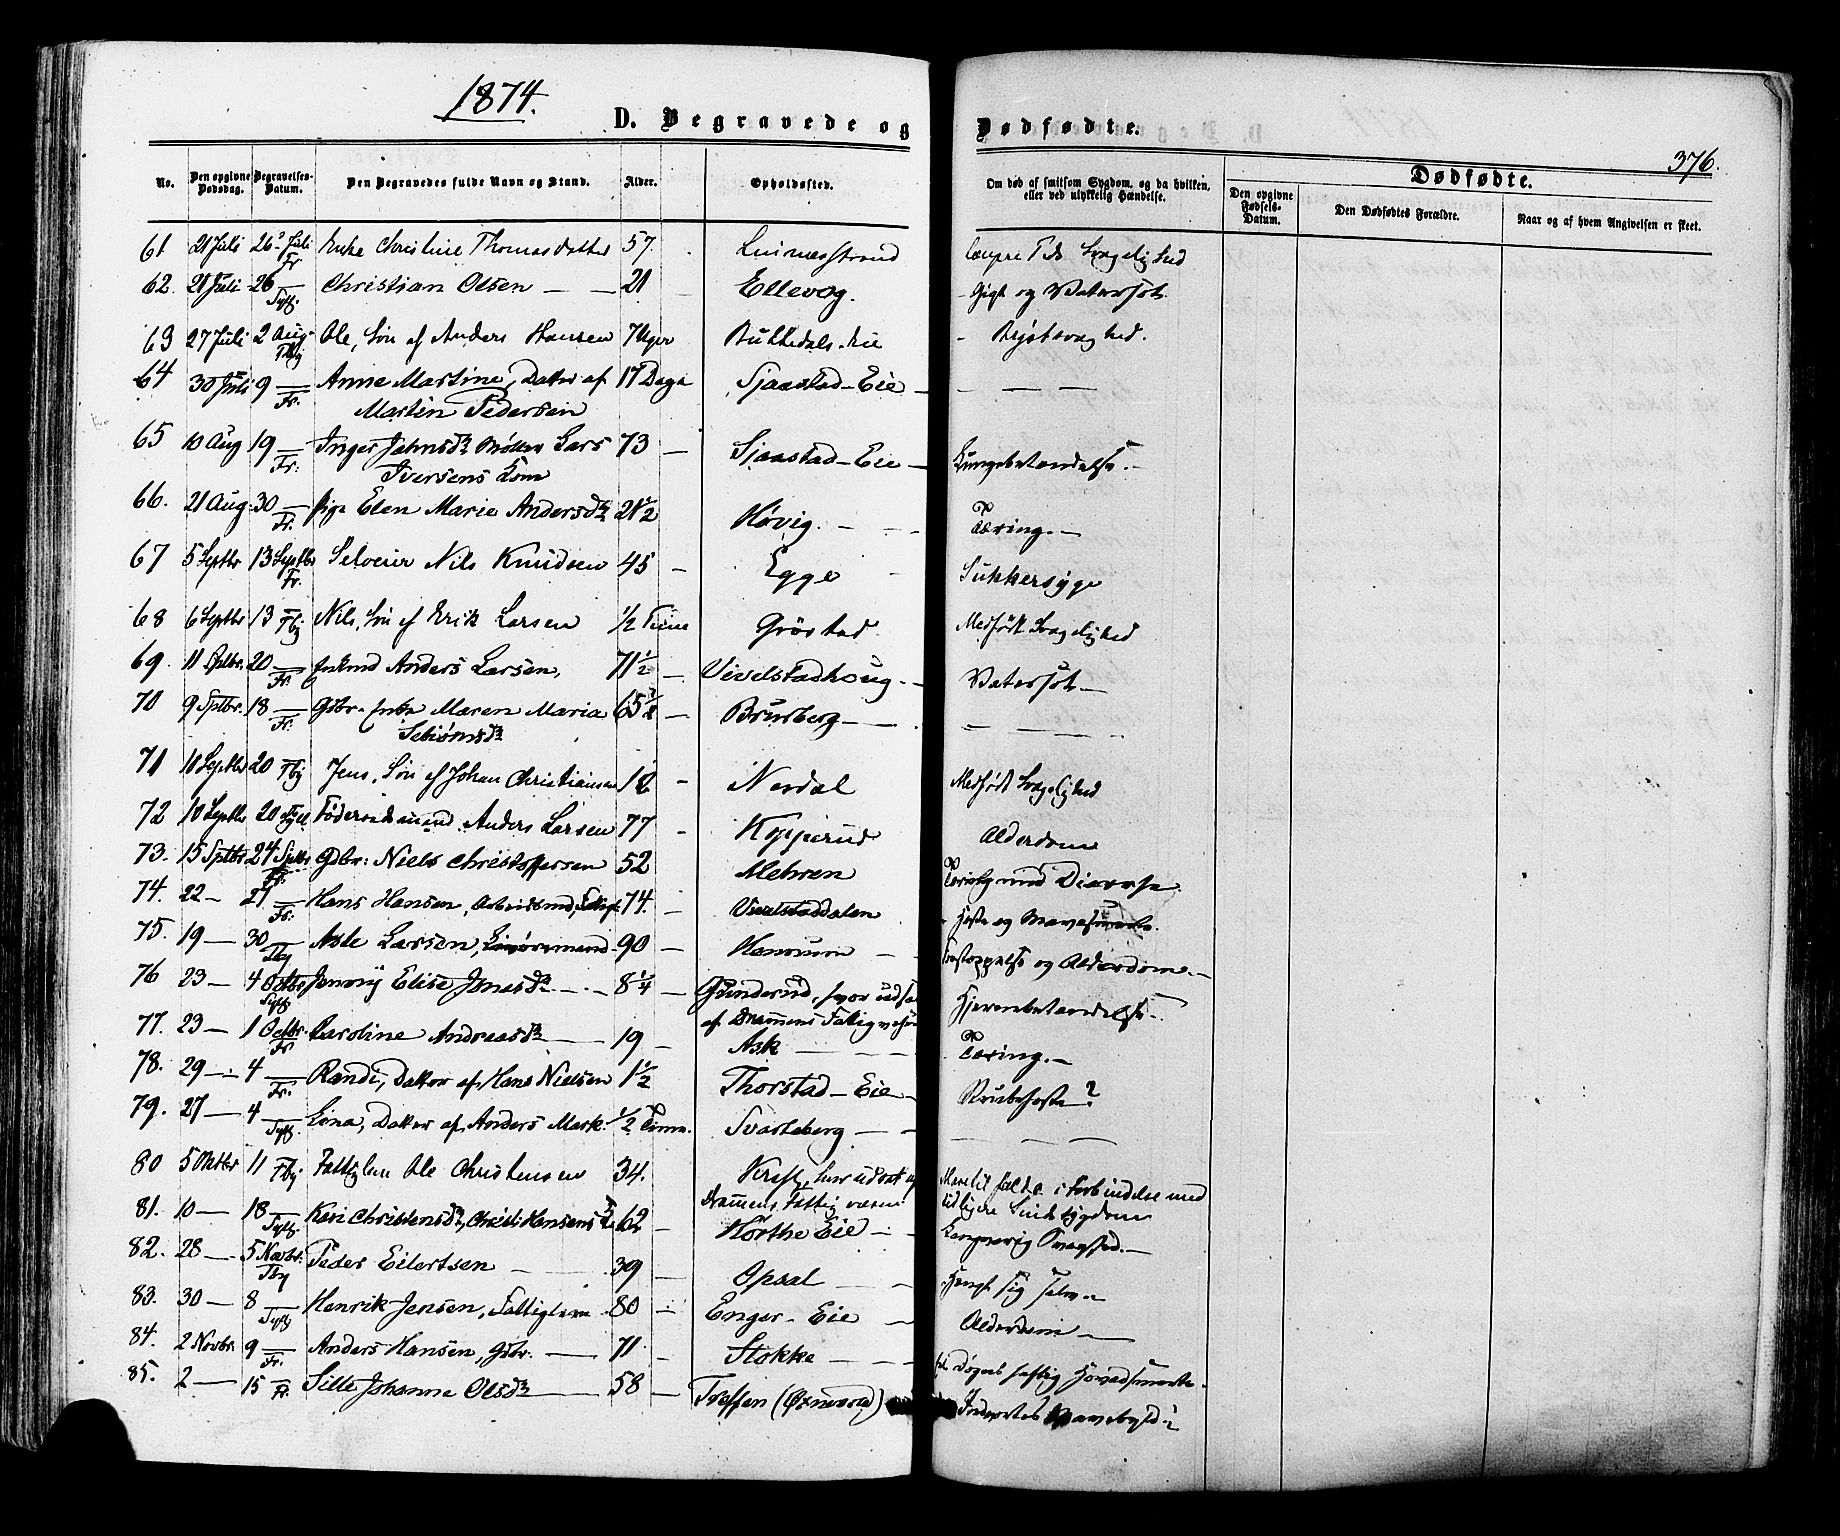 1874.
D. Begravede og Dødfødte.
376.
No. Den opgivne Dødsdag. Begravelses-Datum. Den Begravedes fulde Navn og Stand. Alder. Opholdssted. Om død af smitsom Sygdom, og da hvilken, eller ved ulykkelig Hændelse. Dødfødte.
Den opgivne Fødsels-Datum. Den Dødfødtes Forældre. Naar og af hvem Angivelsen er skeet.
61 21 Juli 26 Juli Fr Enke Christine Thomasdatter 57. Linnesstrand Svagelighed
62. 21 Juli 26 — Tyf. Christian Olsen — 21 Ellevog. Gigt og Vatersot
63 27 Juli 2 Aug Tby Ole, Søn af Anders Hansen 7 Uger Bukkedals Eie Brystsvaghed.
64 30 Juli 9 — Fr. Anne Martine, Datter af 17 Dage Sjaastad-Eie — — — —
Martin Pedersen
65 10 Aug 19 — Fr. Inger Jahnsdr Møller Lars 73 — Sjaastad-Eie — Lungebetændelse. —
Iversens Kone
66. 21 Aug. 30 — Fr. Pige Elen Marie Andersdr 21 1/2 Høvig. — Tæring. —
67 5 Septbr 13 Septbr Fr. Selveier Nils Knudsen 45 — Egge — Sukkersyge
68 6 Septbr 13 Tby Nils, Søn af Erik Larsen 1/2 Time Gröstad Medfødt Svagelighed
69. 11 Sptbr. 20 — Fr. Enkmd Anders Larsen, 71 1/2 — Vivelstadhoug. — Vatersot —
70 9 Sptbr. 18 — Fr. Gdbr. Enke Maren Maria 65 — Brusberg — — — — —
71 10 Septbr 20 Tby Jens, Søn af Johan Christiansen — Nordal Medfødt Svagelighed
72 10 Septbr 20 Føderaadsmand Anders Larsen 77 — Kopperud Alderdom
73. 15 Sptbr 24 Sptbr. Fr. Gdbr: Niels Christophersen 52 Mehren Tæring med Diarrhe.
74. 22 — 27 — Fr. Hans Hansen, Arbeidsmd, 74. — Vivelstaddalen Hoste og
75. 19 — 30 — Tby Asle Larsen, 90 — Hanrum — Forstoppelse og Alderdom. —
76 23 — 4 Octbr Tyf Jenny Elise Jensdr — 8 1/4 — Gunderud, hvor udsat Hjernebetændelse —
af Drammens Fattigvæsen
77. 23 — 1 Octbr. Fr Caroline Andreasdr — 19 — Ask — Tæring. —
78. 29 — 4 — Fr. Randi, Datter af Hans Nielsen 1 1/2 Thorstad-Eie — Strubehoste?
79. 27 — 4 — Tyf. Lina, Datter af Anders Mark. 1/2 Time. Svarteberg — — — — —
80 5 Oktbr 11 Tby Fattiglem Ole Christensen 34. Kraft, hvor udsat af i Forbindelse med
Drammens Fattigvæsen tidligere Sindssygdom
81. 10 — 18 — Tyf Kari Christensdr, Christi Hansens 62 — Hörthe Eie — Langvarig Svaghed. —
82. 28 — 5 Novbr. Tby Peder Eilertsen — 39 — Opsal — Hængt sig selv —
83. 30 — 8 — Tyf Henrik Jensen, Fattiglem 80 — Enger-Eie — Alderdom —
84. 2 Novbr. 9 — Fr. Anders Hansen, Gdbr. — 71 — Stokke — Døgns heftig Hovedsmerte.
85. 2 — 15 Fr. Sille Johanne Olsdr — 58 — Treffen (Oxnevad) Indvortes